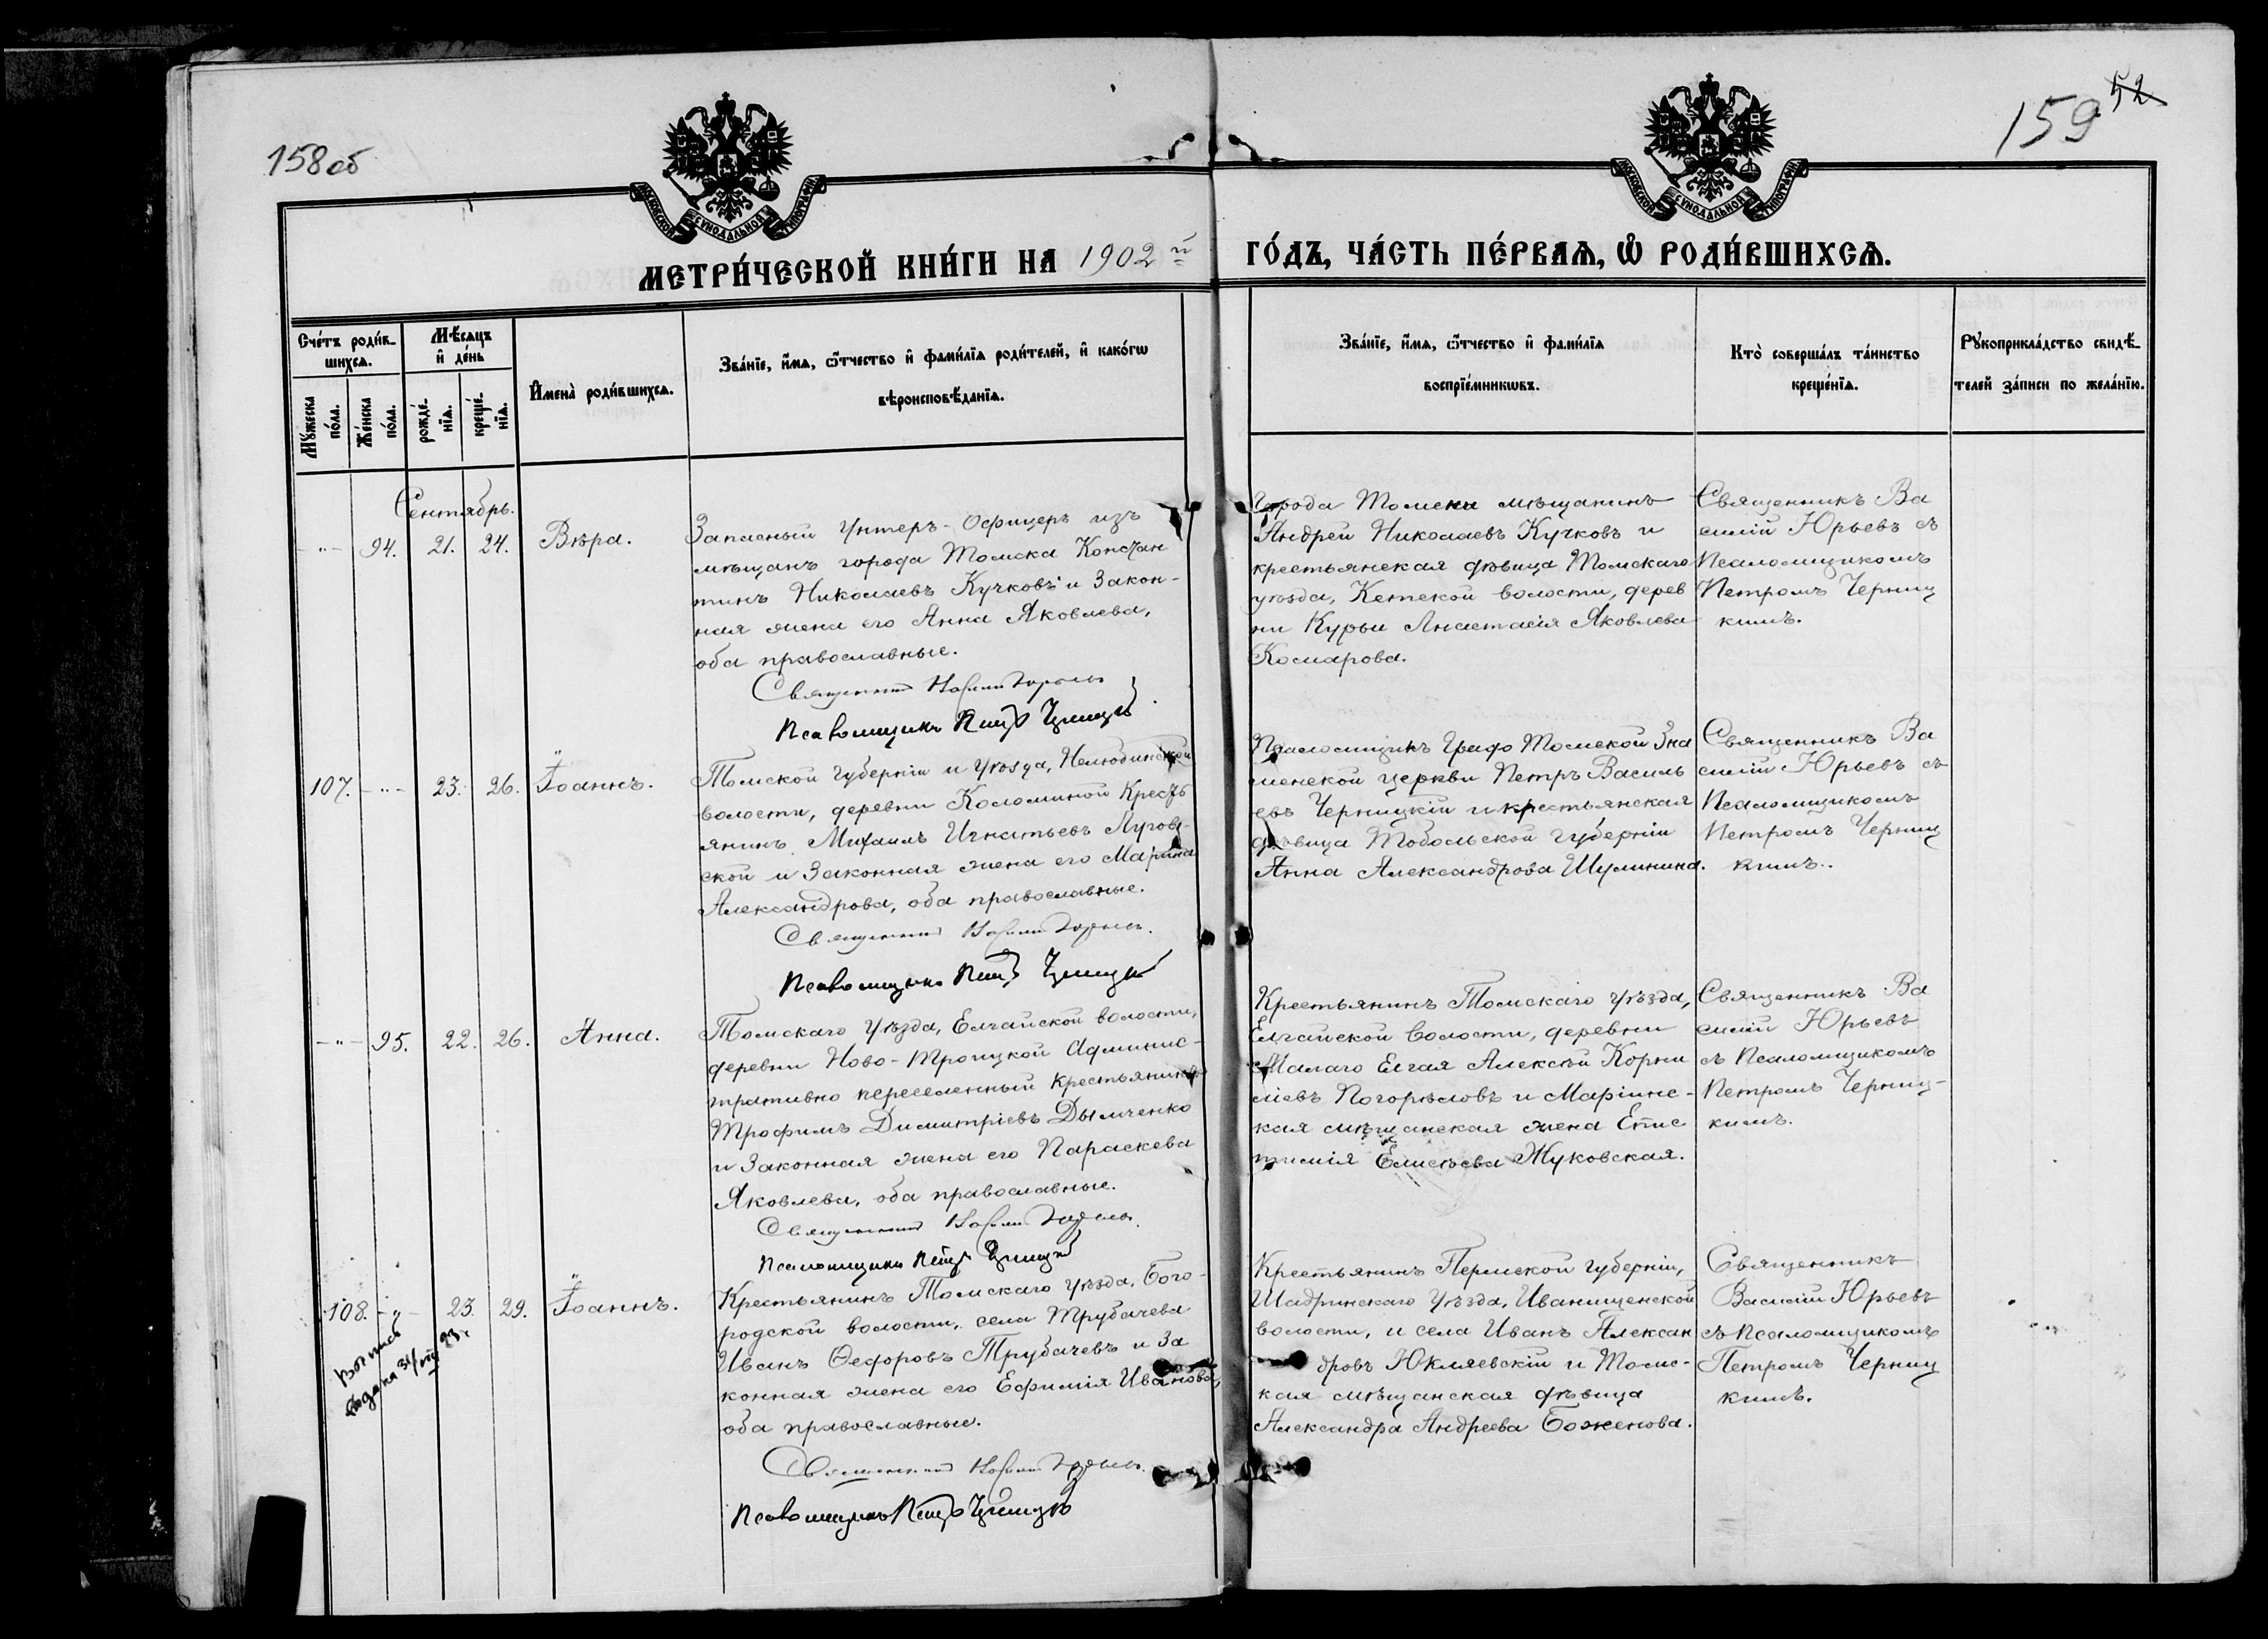 158об
159 52
МОСКОВСКОЙ СѴНОДАЛЬНОЙ ТИПОГРАФІИ
МОСКОВСКОЙ СѴНОДАЛЬНОЙ ТИПОГРАФІИ
МЕТРИ́ЧЕСКОЙ КНИ́ГИ НА 1902й
ГО́ДЪ, ЧА́СТЬ ПЕ́РВАѦ, Ѡ҆ РОДИ́ВШИХСѦ.
Сче́тъ роди́в-
шихсѧ.
Мѣ́сѧцъ
и҆ де́нь
Му́жеска
по́ла.
Же́нска
по́ла.
рожде́-
нїѧ.
креще́-
нїѧ.
И҆мена̀ роди́вшихсѧ.
Зва́нїе, и҆́мѧ, ѻ҆́тчество и҆ фами́лїѧ роди́телей, и҆ како́гѡ
вѣроисповѣ́данїѧ.
Зва́нїе, и҆́мѧ, ѻ҆́тчество и҆ фами́лїѧ
воспрїе́мникѡвъ.
Кто̀ соверша́лъ та́инство
креще́нїѧ.
Рꙋкоприкла́дство свидѣ́-
телей за́писи по жела́нїю.
Сентябрь.
-"- 94. 21. 24. Вѣра.
Запасный Унтеръ-Офицеръ изъ
мѣщанъ города Томска Констан
тинъ Николаевъ Кучковъ и Закон-
ная жена его Анна Яковлева,
оба православные.
Священникъ Василій Юрьевъ
Псаломщикъ Петръ Черницкій
города Томска мѣщанинъ
Андрей Николаевъ Кучковъ и
крестьянская дѣвица Томскаго
уѣзда, Кетской волости, дерев
ни Курьи Анастасія Яковлева
Комарова.
Священникъ Ва
силій Юрьевъ съ
Псаломщикомъ
Петромъ Черниц
кимъ.
107. -"- 23. 26. Іоаннъ.
Томской губерніи и уѣзда, Нелюбинской
волости, деревни Коломиной Кресть
янинъ Михаилъ Игнатьевъ Лугов-
ской и Законная жена его Марина
Александрова, оба православные.
Священникъ Василій Юрьевъ.
Псаломщикъ Петръ Черницкій
Псаломщикъ Градо Томской Зна
менской церкви Петръ Василь
евъ Черницкій и крестьянская
дѣвица Тобольской губерніи
Анна Александрова Шулинина.
Священникъ Ва
силій Юрьевъ съ
Псаломщикомъ
Петромъ Черниц
кимъ.
-"- 95. 22. 26. Анна.
Томскаго уѣзда, Елгайской волости,
деревни Ново-Троицкой Админис-
тративно переселенный крестьянинъ
Трофимъ Димитріевъ Дымченко
и Законная жена его Параскева
Яковлева, оба православные.
Священникъ Василій Юрьевъ.
Псаломщикъ Петръ Черницкій
Крестьянинъ Томскаго уѣзда,
Елгайской волости, деревни
Малаго Елгая Алексѣй Корни
ліевъ Погорѣловъ и Маріинс-
кая мѣщанская жена Епис
тимія Елисѣева Жуковская.
Священникъ Ва
силій Юрьевъ
съ Псаломщикомъ
Петромъ Черниц-
кимъ.
108. -"- 23. 29. Іоаннъ.
Крестьянинъ Томскаго уѣзда, Бого-
родской волости, села Трубачева
Иванъ Ѳедоровъ Трубачевъ и За
конная жена его Ефимія Иванова,
оба православные.
Священникъ Василій Юрьевъ.
Псаломщикъ Петръ Черницкій
Крестьянинъ Пермской губерніи,
Шадринскаго уѣзда, Иванищенской
волости, и села Иванъ Алексан
дровъ Юкляевскій и Томс-
кая мѣщанская дѣвица
Александра Андреева Боженова.
Священникъ
Василій Юрьевъ
съ Псаломщикомъ
Петромъ Черниц
кимъ.